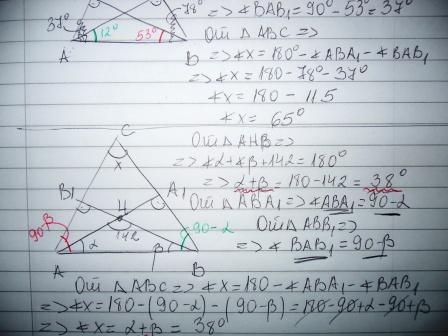 => ∢BAB₁ = 90° - 53° = 37°
37° 12° 53° 78°
A B
От △ABC =>
=> ∢x = 180° - ∢ABA₁ - ∢BAB₁
=> ∢x = 180 - 78° - 37°
∢x = 180 - 115
∢x = 65°
C
x
От △AHB =>
=> ∢α + ∢β + 142 = 180°
=> α + β = 180 - 142 = 38°
B₁ H A₁
От △ABA₁ => ∢ABA₁ = 90 - α
90-β α 142 β 90-α
От △ABB₁ =>
=> ∢BAB₁ = 90 - β
A B
От △ABC => ∢x = 180 - ∢ABA₁ - ∢BAB₁
=> ∢x = 180 - (90 - α) - (90 - β) = 180 - 90 + α - 90 + β
=> ∢x = α + β = 38°